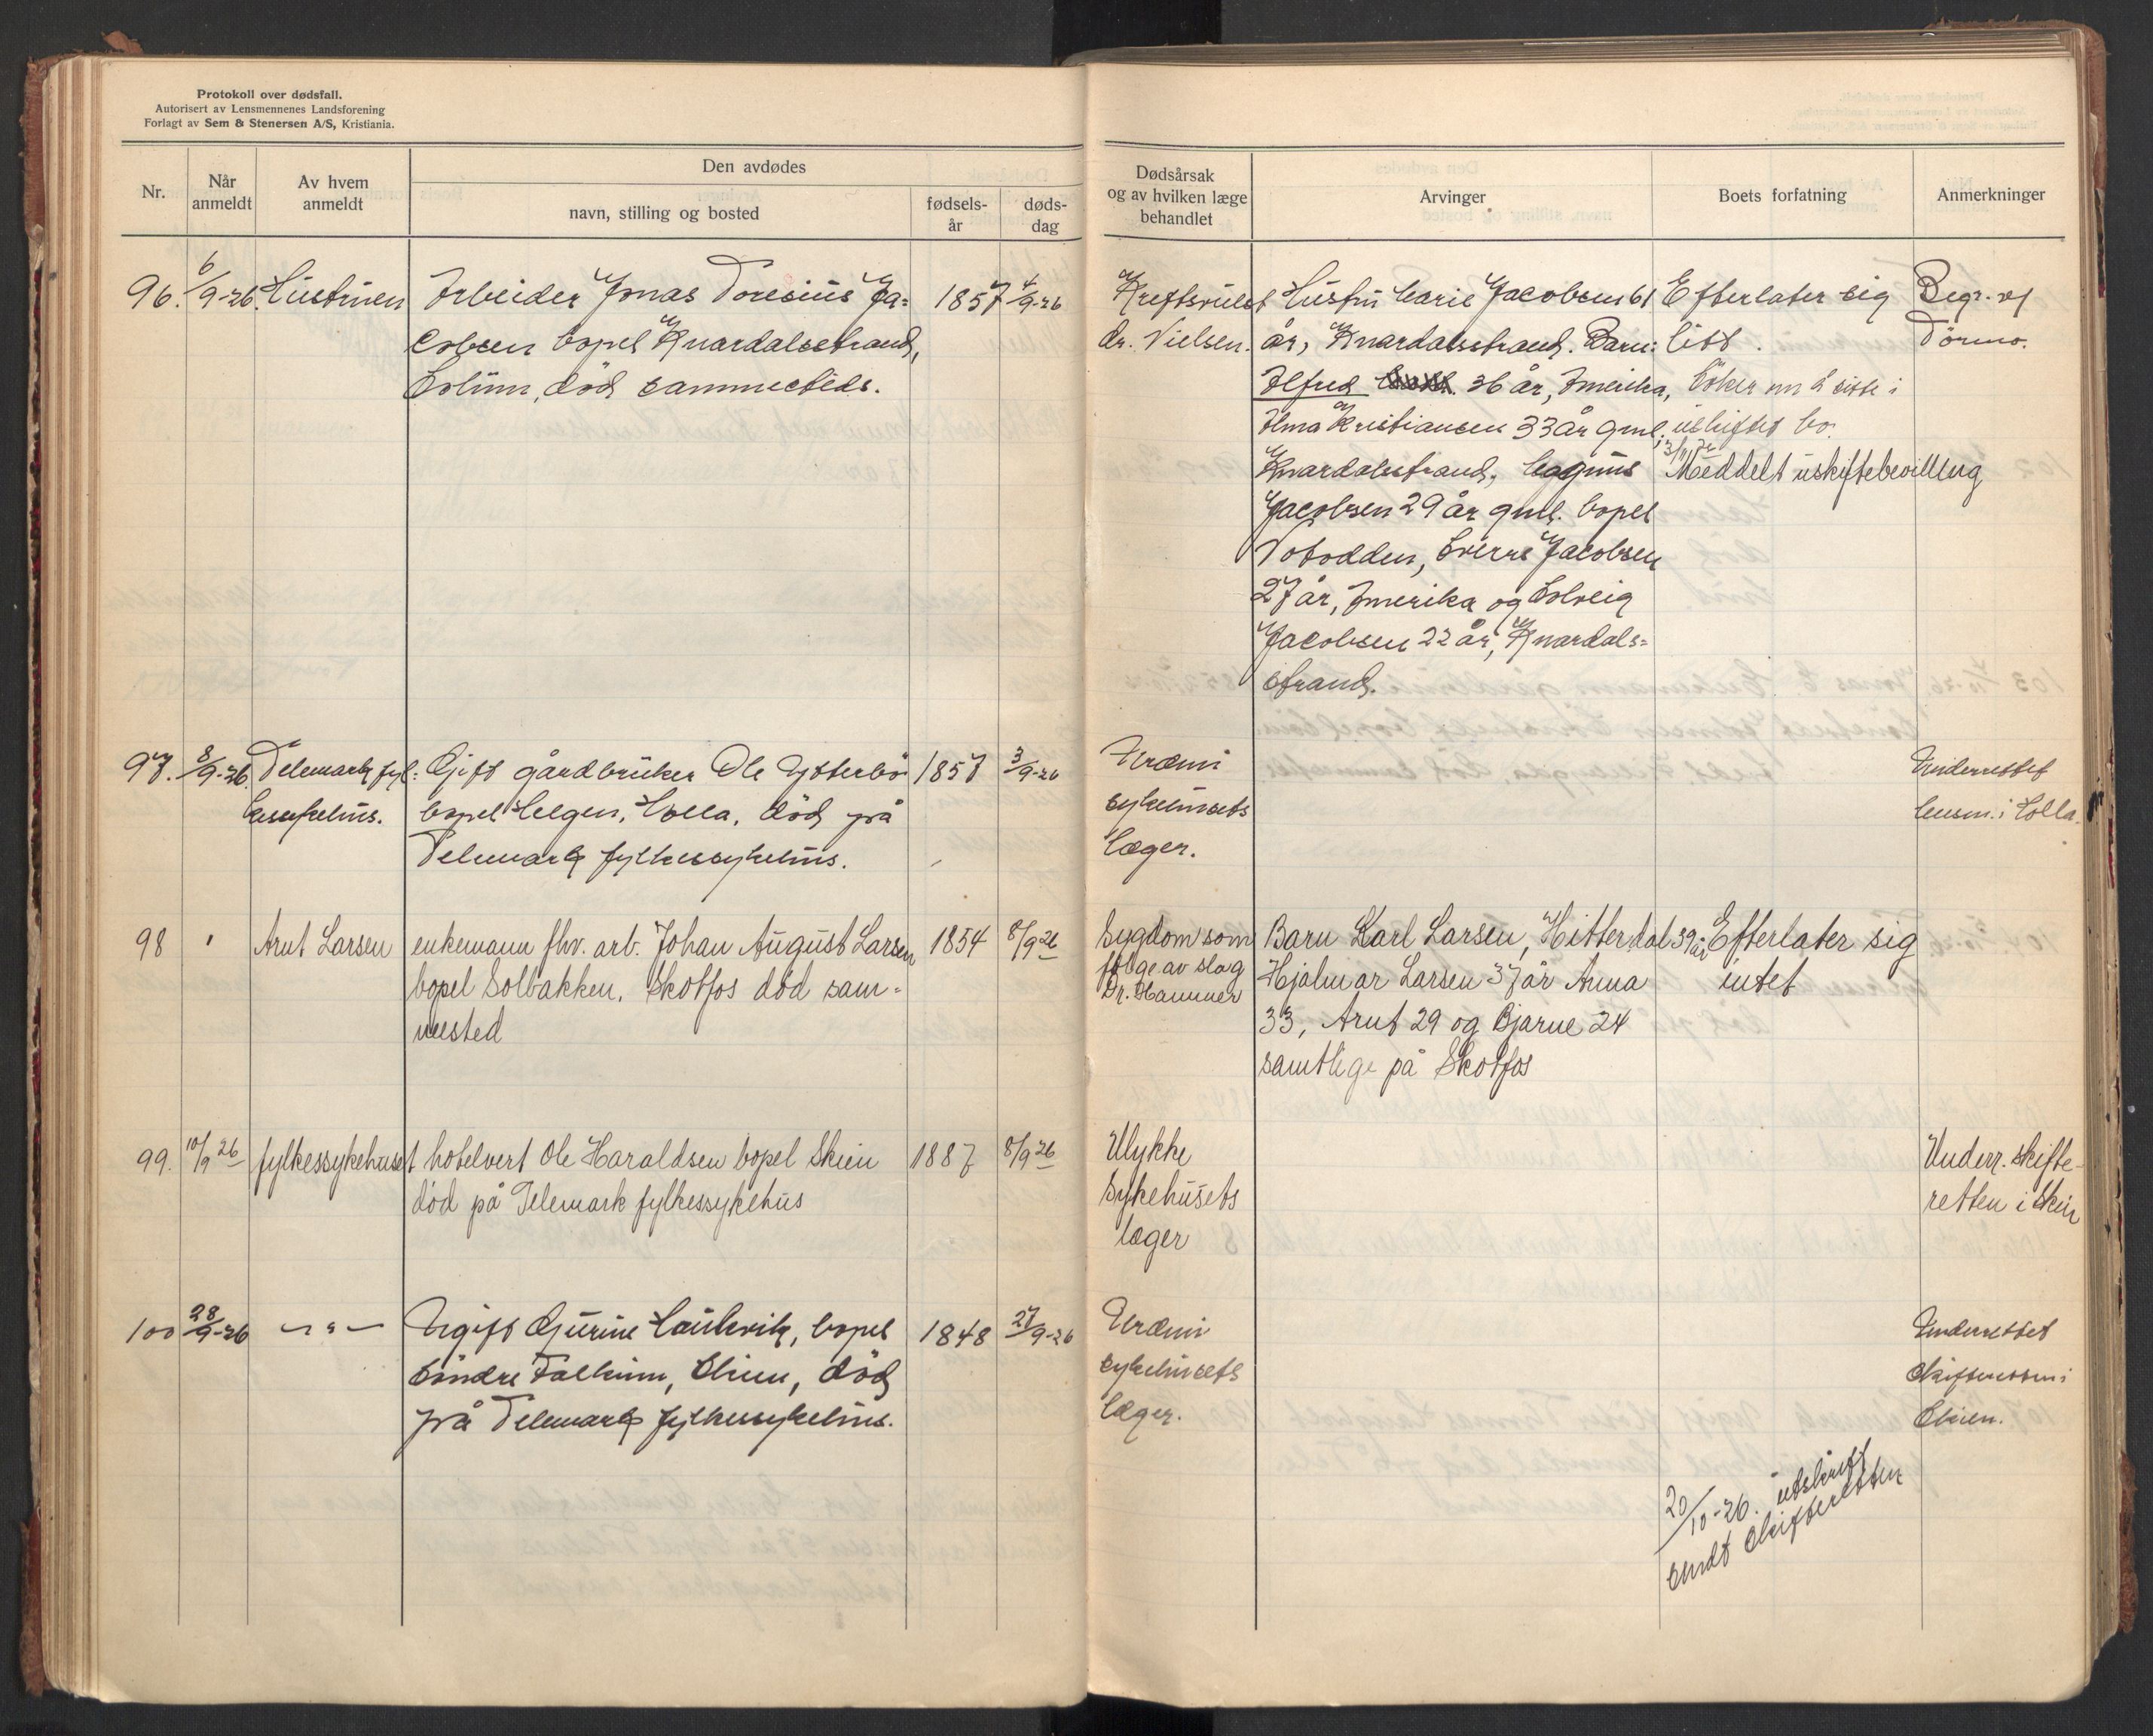 Protokoll over dødsfall.
Autorisert av Lensmennenes Landsforening
Forlagt av Sem & Stenersen A/S, Kristiania.
Nr.
Når anmeldt
Av hvem anmeldt
Den avdødes
navn, stilling og bosted
fødsels-år
døds-dag
Dødsårsak og av hvilken læge behandlet
Arvinger
Boets forfatning
Anmerkninger
96. 6/9-26. Hustruen
Arbeider Jonas Toresius Ja=
cobsen bopel Knardalsstrand,
Solum, död sammesteds.
1857 4/9-26
Kreftsvulst
dr. Nielsen.
Hustru Marie Jacobsen 61
år, Knardalsstrand. Barn:
Alfred 36 år, Amerika,
Alma Kristiansen 33 år gml.
Knardalsstrand, Magnus
Jacobsen 29 år gml. bopel
Notodden, Sverre Jacobsen
27 år, Amerika og Solveig
Jacobsen 22 år, Knardals=
strand.
Efterlater sig
litt.
Söker om å sitte i
uskiftet bo.
Meddelt uskiftebevilling
Begr. af
Törmo.
97. 8/9-26. Telemark fyl=
kessykehus.
Gift gårdbruker Ole Ytterbö
bopel Helgen, Holla, död på
Telemark fylkessykehus.
1857 3/9-26
Uræmi
sykehusets
læger.
Underrettet
lensm. i Holla.
98 " Arnt Larsen
enkemann fhv. arb. Johan August Larsen
bopel Solbakken, Skotfos död sam-
mested
1854 8/9 26
Sygdom som
følge av slag
Dr. Hammer
Barn Karl Larsen, Hitterdal 39 år
Hjalmar Larsen 37 år Anna
33, Arnt 29 og Bjarne 24
samtlige på Skotfos
Efterlater sig
intet
99. 10/9 26 fylkessykehuset
hotelvert Ole Haraldsen bopel Skien
död på Telemark fylkessykehus
1887 8/9 26
Ulykke
Sykehusets
læger
Underr. skifte-
retten i Skien
100 28/9-26 — " —
Ugift Gurine Haukvik, bopel
Söndre Falkum, Skien, död
på Telemark fylkessykehus.
1848 27/9-26
Uræmi
sykehusets
læger.
Underrettet
skifteretten i
Skien.
20/10-26. utskrift
sendt skifteretten